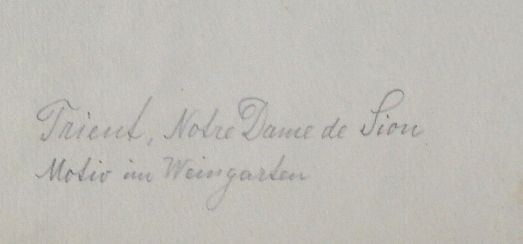 Trient, Notre Dame de Sion
Motiv im Weingarten